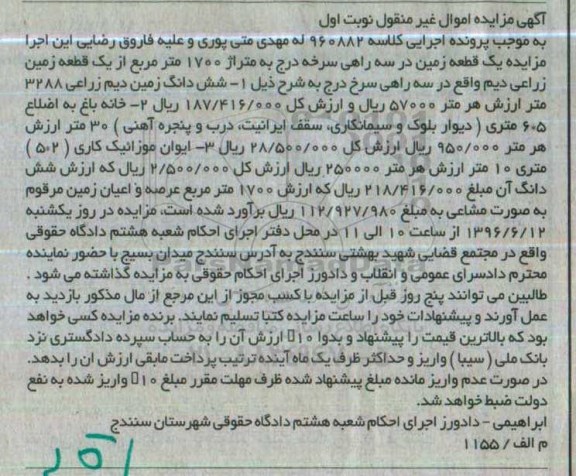 آگهی مزایده اموال غیر منقول نوبت اول
به موجب پرونده اجرایی کلاسه ۹۶۰۸۸۲ له مهدی متی پوری و علیه فاروق رضایی این اجرا
مزایده یک قطعه زمین در سه راهی سرخه درج به متراژ ۱۷۰۰ متر مربع از یک قطعه زمین
زراعی دیم واقع در سه راهی سرخ درج به شرح ذیل ۱- شش دانگ زمین دیم زراعی ۳۲۸۸
متر ارزش هر متر ۵۷۰۰۰ ریال و ارزش کل ۱۸۷/۴۱۶/۰۰۰ ریال ۲- خانه باغ به اضلاع
۶*۵ متری ( دیوار بلوک و سیمانکاری، سقف ایرانیت، درب و پنجره آهنی ) ۳۰ متر ارزش
هر متر ۹۵۰/۰۰۰ ریال ارزش کل ۲۸/۵۰۰/۰۰۰ ریال ۳- ایوان موزائیک کاری ( ۵*۲ )
متری ۱۰ متر ارزش هر متر ۲۵۰۰۰۰ ریال ارزش کل ۲/۵۰۰/۰۰۰ ریال که ارزش شش
دانگ آن مبلغ ۲۱۸/۴۱۶/۰۰۰ ریال که ارزش ۱۷۰۰ متر مربع عرصه و اعیان زمین مرقوم
به صورت مشاعی به مبلغ ۱۱۲/۹۲۷/۹۸۰ ریال برآورد شده است، مزایده در روز یکشنبه
۱۳۹۶/۶/۱۲ از ساعت ۱۰ الی ۱۱ در محل دفتر اجرای احکام شعبه هشتم دادگاه حقوقی
واقع در مجتمع قضایی شهید بهشتی سنندج به آدرس سنندج میدان بسیج با حضور نماینده
محترم دادسرای عمومی و انقلاب و دادورز اجرای احکام حقوقی به مزایده گذاشته می شود .
طالبین می توانند پنج روز قبل از مزایده با کسب مجوز از این مرجع از مال مذکور بازدید به
عمل آورند و پیشنهادات خود را ساعت مزایده کتبا تسلیم نمایند. برنده مزایده کسی خواهد
بود که بالاترین قیمت را پیشنهاد و بدوا ۱۰٪ ارزش آن را به حساب سپرده دادگستری نزد
بانک ملی ( سیبا ) واریز و حداکثر ظرف یک ماه آینده ترتیب پرداخت مابقی ارزش ان را بدهد.
در صورت عدم واریز مانده مبلغ پیشنهاد شده ظرف مهلت مقرر مبلغ ۱۰٪ واریز شده به نفع
دولت ضبط خواهد شد.
ابراهیمی - دادورز اجرای احکام شعبه هشتم دادگاه حقوقی شهرستان سنندج
م الف / ۱۱۵۵